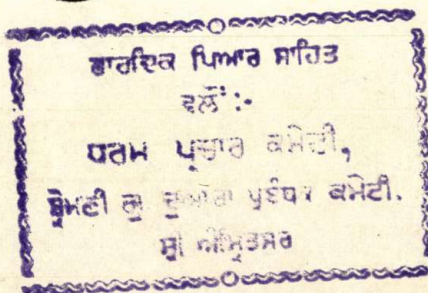 ਹਾਰਦਿਕ ਪਿਆਰ ਸਾਹਿਤ
ਵਲੋਂ :-
ਧਰਮ ਪ੍ਰਚਾਰ ਕਮੇਟੀ,
ਸ਼੍ਰੋਮਣੀ ਗੁ ਦੁਆਰਾ ਪ੍ਰਬੰਧਕ ਕਮੇਟੀ.
ਸ੍ਰੀ ਅੰਮ੍ਰਿਤਸਰ